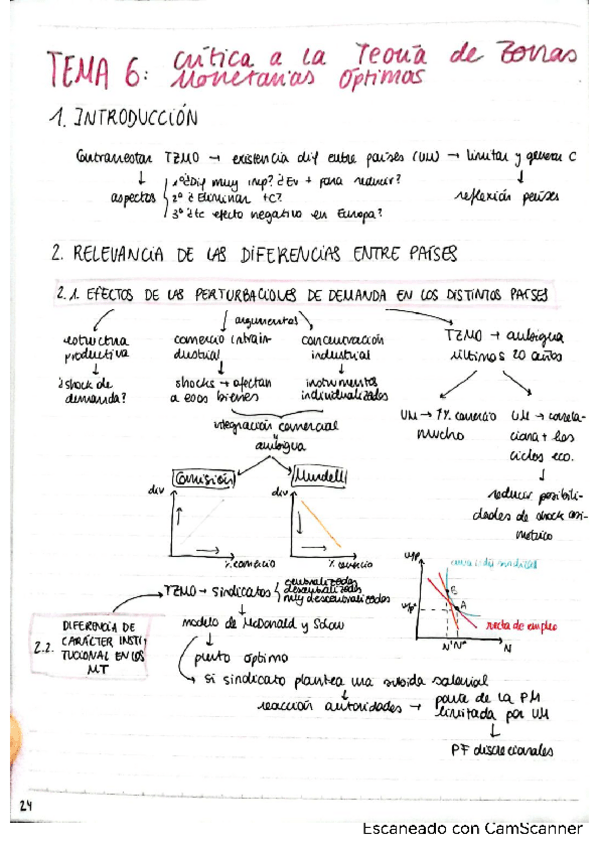 TEMA 6: Crítica a la Teoría de Zonas
Monetarias Óptimas
1. INTRODUCCIÓN
Contrarrestar TZMO → existencia dif entre países (UM) → limitar y generar C
aspectos
1º ¿Dif muy imp? ¿Ev + para reducir?
2º ¿Eliminar tC?
3º ¿tc efecto negativo en Europa?
reflexión países
2. RELEVANCIA DE LAS DIFERENCIAS ENTRE PAÍSES
2.1. EFECTOS DE LAS PERTURBACIONES DE DEMANDA EN LOS DISTINTOS PAÍSES
argumentos
estructura
productiva
¿shock de
demanda?
comercio intrain-
dustrial
shocks → afectan
a esos bienes
concentración
industrial
instrumentos
individualizados
TZMO → ambigua
últimos 20 años
integración comercial
y
ambigua
UM → ↑% comercio
mucho
UM → correla-
ciona + los
ciclos eco.
reducir posibili-
dades de shock asi-
métrico
Comisión
div
% comercio
Mundell
div
% comercio
TZMO → sindicatos
centralizados
descentralizados
muy descentralizados
2.2. DIFERENCIA DE
CARÁCTER INSTI
TUCIONAL EN LOS
MT
modelo de McDonald y Solow
punto óptimo
si sindicato plantea una subida salarial
reacción autoridades →
de la PM
limitada por UM
PF discrecionales
W/P
B
A
recta de empleo
N' N* N
24
Escaneado con CamScanner